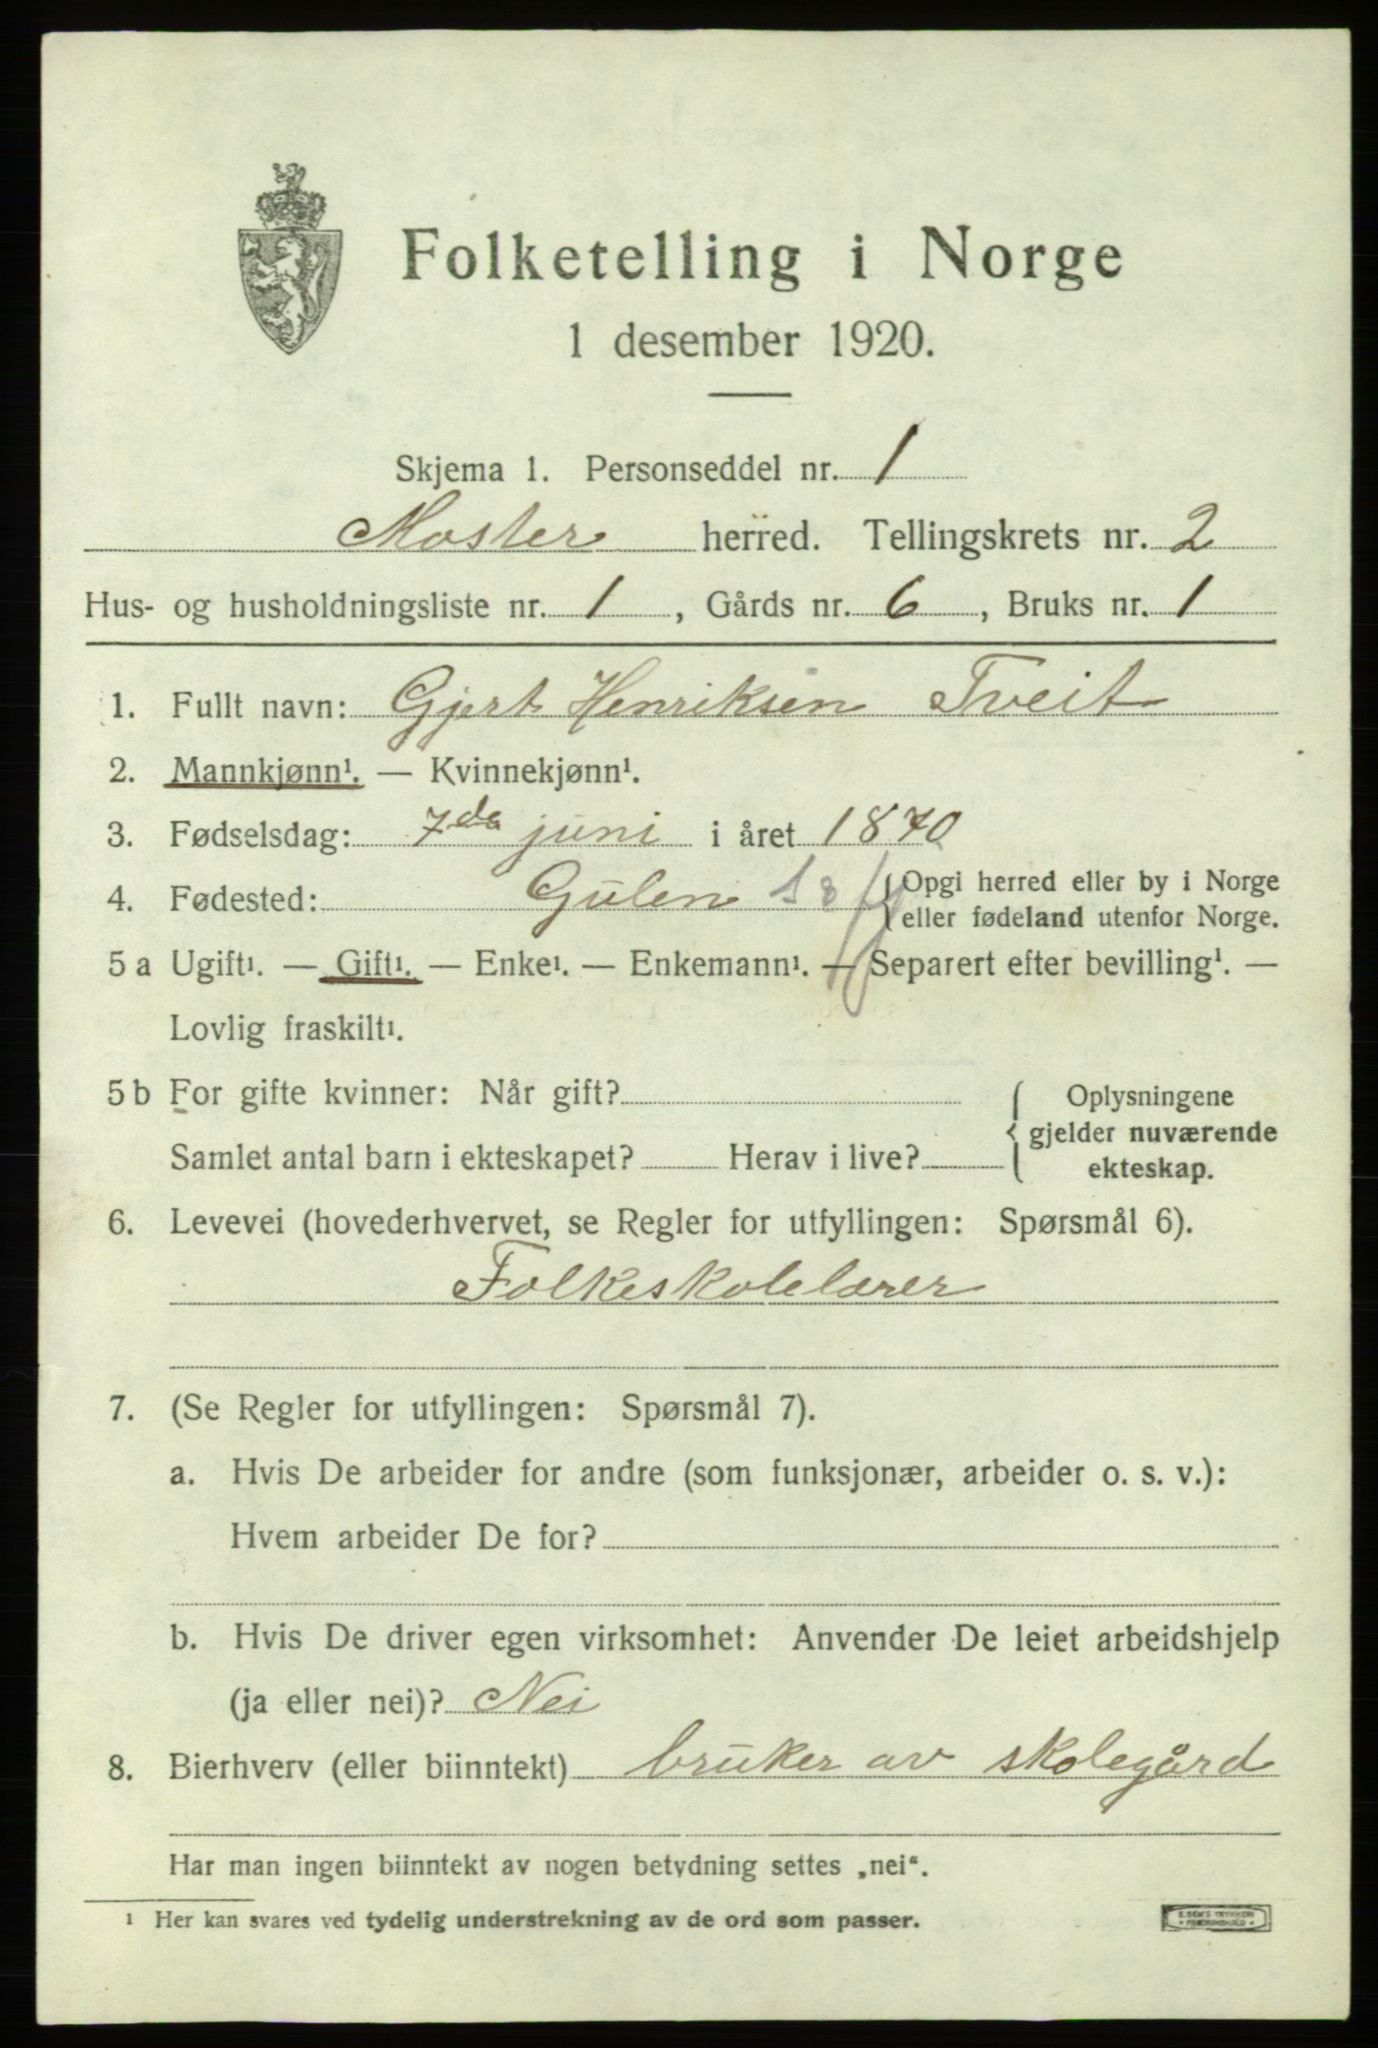 Folketelling i Norge
1 desember 1920.
Skjema 1. Personseddel nr. 1
Moster herred. Tellingskrets nr. 2
Hus- og husholdningsliste nr. 1, Gårds nr. 6, Bruks nr. 1
1. Fullt navn: Gjert Henriksen Tveit
2. Mannkjønn¹. — Kvinnekjønn¹.
3. Fødselsdag: 7da juni i året 1870
4. Fødested: Gulen {Opgi herred eller by i Norge
eller fødeland utenfor Norge.
5 a Ugift¹. — Gift¹. — Enke¹. — Enkemann¹. — Separert efter bevilling¹. —
Lovlig fraskilt¹.
5 b For gifte kvinner: Når gift?
Samlet antal barn i ekteskapet? Herav i live?
{ Oplysningene
gjelder nuværende
ekteskap.
6. Levevei (hovederhvervet, se Regler for utfyllingen: Spørsmål 6).
Folkeskolelærer
7. (Se Regler for utfyllingen: Spørsmål 7).
a. Hvis De arbeider for andre (som funksjonær, arbeider o. s. v.):
Hvem arbeider De for?
b. Hvis De driver egen virksomhet: Anvender De leiet arbeidshjelp
(ja eller nei)? Nei
8. Bierhverv (eller biinntekt) bruker av skolegård
Har man ingen biinntekt av nogen betydning settes „nei“.
¹ Her kan svares ved tydelig understrekning av de ord som passer.